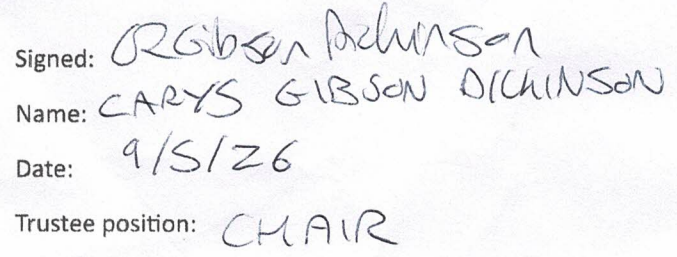 Signed: CRGibson Dickinson
Name: CARYS GIBSON DICKINSON
Date: 9/5/26
Trustee position: CHAIR